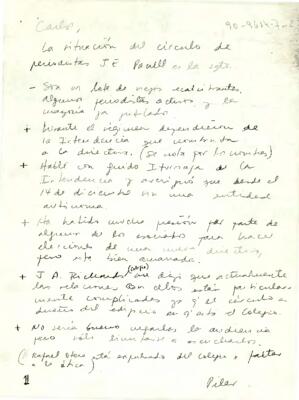 90-9614-7-2
Carlos,
La situación del círculo de
periodistas J E Powell es la sgte.
- Son un lote de viejos recalcitrantes,
algunos periodistas activos y la
mayoría ya jubilado.
+ Durante el régimen dependieron de
la Intendencia que nombraba
a la directiva. (Se nota por los nombres)
+ Hablé con Guido Iturriaga de la
Intendencia y averiguó que desde el
14 de diciembre son una entidad
autónoma.
+ Ha habido mucha presión por parte de
algunos de los asociados para hacer
elecciones de una nueva directiva,
pero está bien amarrada.
+ J. A. Richards me dijo que actualmente
las relaciones con ellos están particular-
mente complicadas ya q el círculo es
dueño del edificio en q está el colegio.
+ No sería bueno negarles la audiencia
pero sólo limitarse a escucharlos.
(Rafael Otero está expulsado del colegio x faltar
a la ética)
1
Pilar.